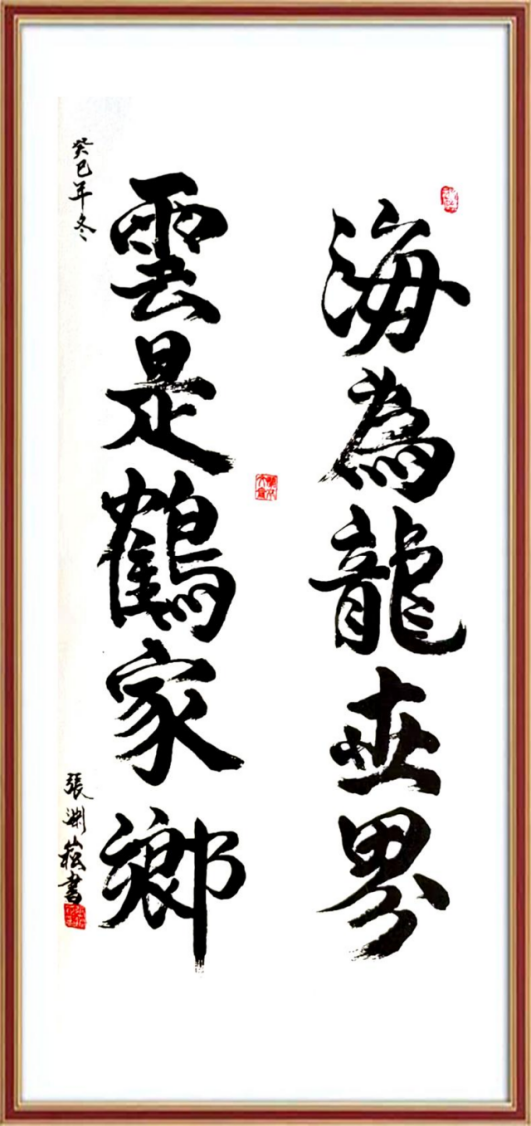 海為龍世界
雲是鶴家鄉
癸巳年冬
張淵崧書